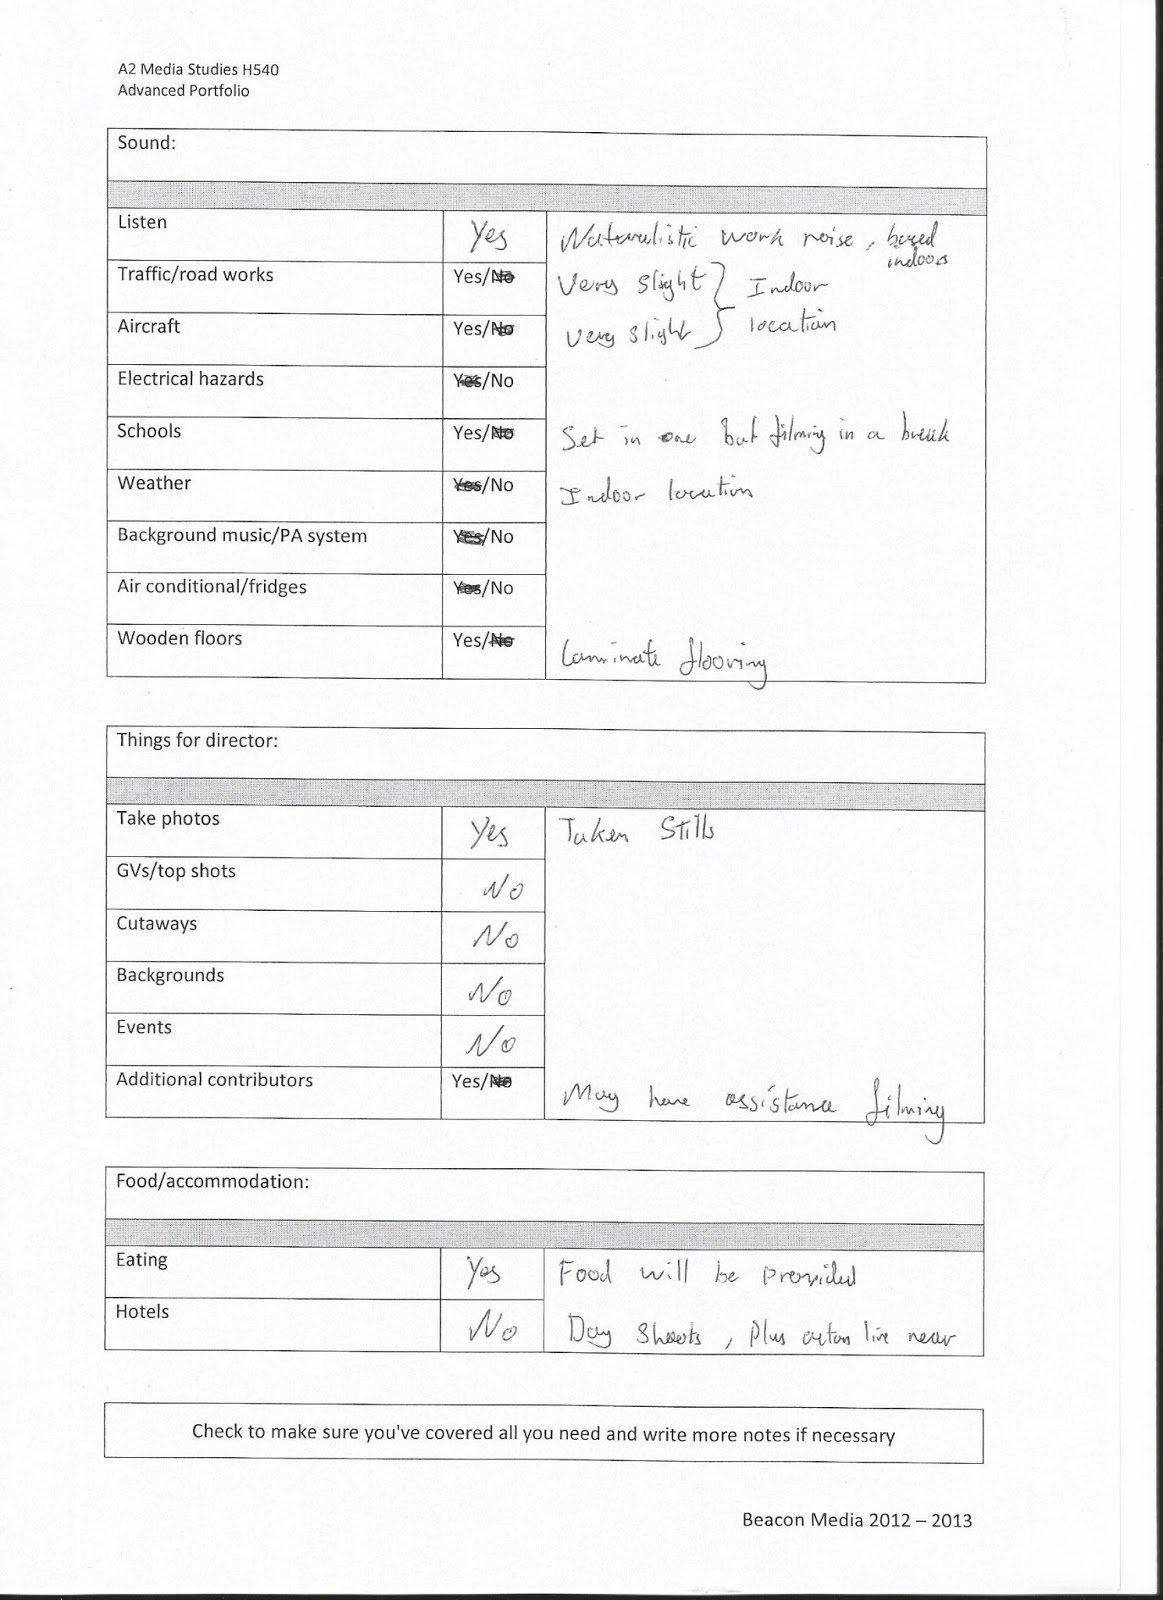 A2 Media Studies H540
Advanced Portfolio
Sound:
Listen Yes Naturalistic work noise, based indoors
Traffic/road works Yes/No Very slight } Indoor
Aircraft Yes/No Very slight } location
Electrical hazards Yes/No
Schools Yes/No Set in one but filming in a break
Weather Yes/No Indoor location
Background music/PA system Yes/No
Air conditional/fridges Yes/No
Wooden floors Yes/No Laminate flooring
Things for director:
Take photos Yes Taken Stills
GVs/top shots No
Cutaways No
Backgrounds No
Events No
Additional contributors Yes/No May have assistance filming
Food/accommodation:
Eating Yes Food will be provided
Hotels No Day shoots, Plus live near
Check to make sure you've covered all you need and write more notes if necessary
Beacon Media 2012 – 2013